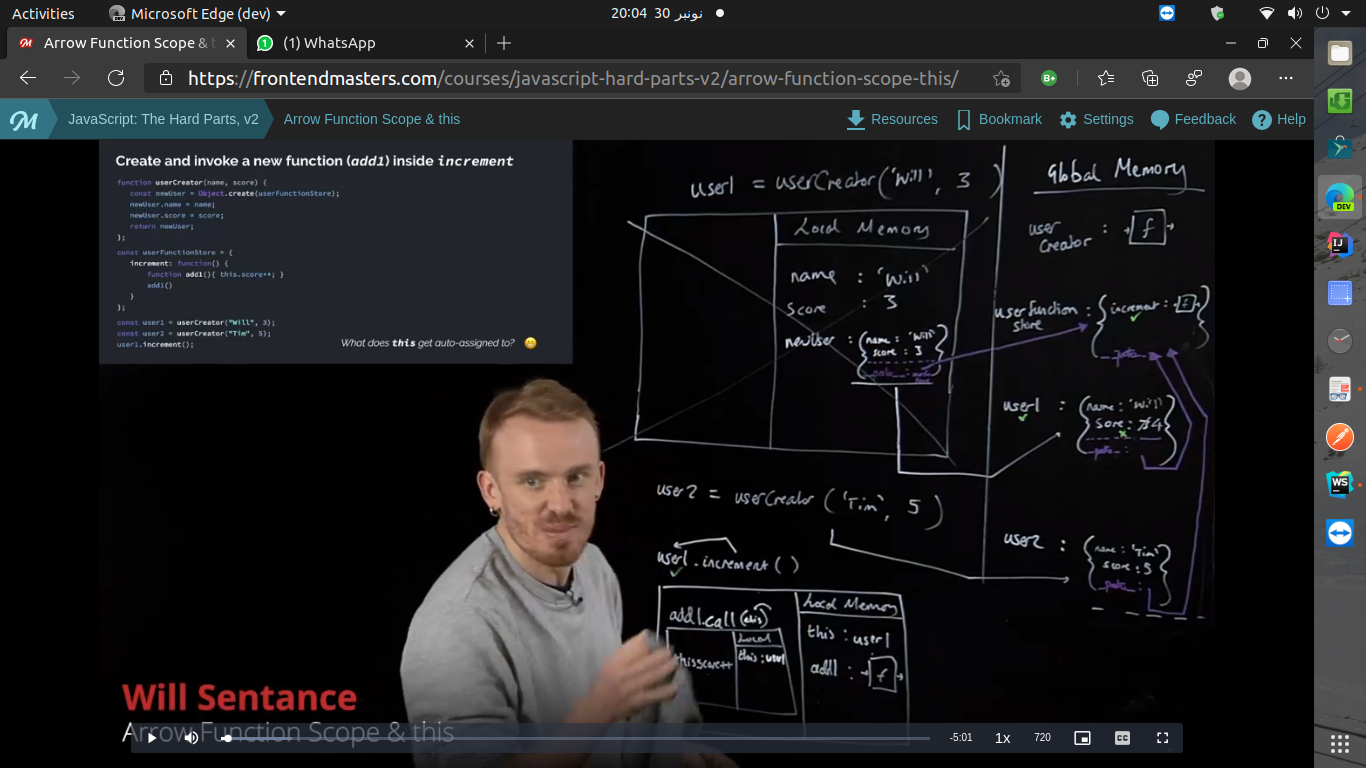 Activities
Microsoft Edge (dev)
20:04 30 نونبر
Arrow Function Scope & t
(1) WhatsApp
https://frontendmasters.com/courses/javascript-hard-parts-v2/arrow-function-scope-this/
B+
JavaScript: The Hard Parts, v2
Arrow Function Scope & this
Resources
Bookmark
Settings
Feedback
Help
Create and invoke a new function (add1) inside increment
function userCreator(name, score) {
const newUser = Object.create(userFunctionStore);
newUser.name = name;
newUser.score = score;
return newUser;
};
const userFunctionStore = {
increment: function() {
function add1(){ this.score++; }
add1()
}
};
const user1 = userCreator("Will", 3);
const user2 = userCreator("Tim", 5);
user1.increment();
What does this get auto-assigned to?
user1 = userCreator('Will', 3 )
Local Memory
name : 'Will'
score : 3
newUser : {name : 'Will'
score : 3
user2 = userCreator ('Tim', 5 )
user1.increment ( )
add1.call (this)
Local
this : user1
Local Memory
this : user1
add1 : f
Global Memory
user
Creator : f
userfunction : { increment : f }
store
user1 : {name : 'Will'
user2 : {name : 'Tim'
score : 5
Will Sentance
Arrow Function Scope & this
-5:01
1x
720
CC
DEV
IJ
WS